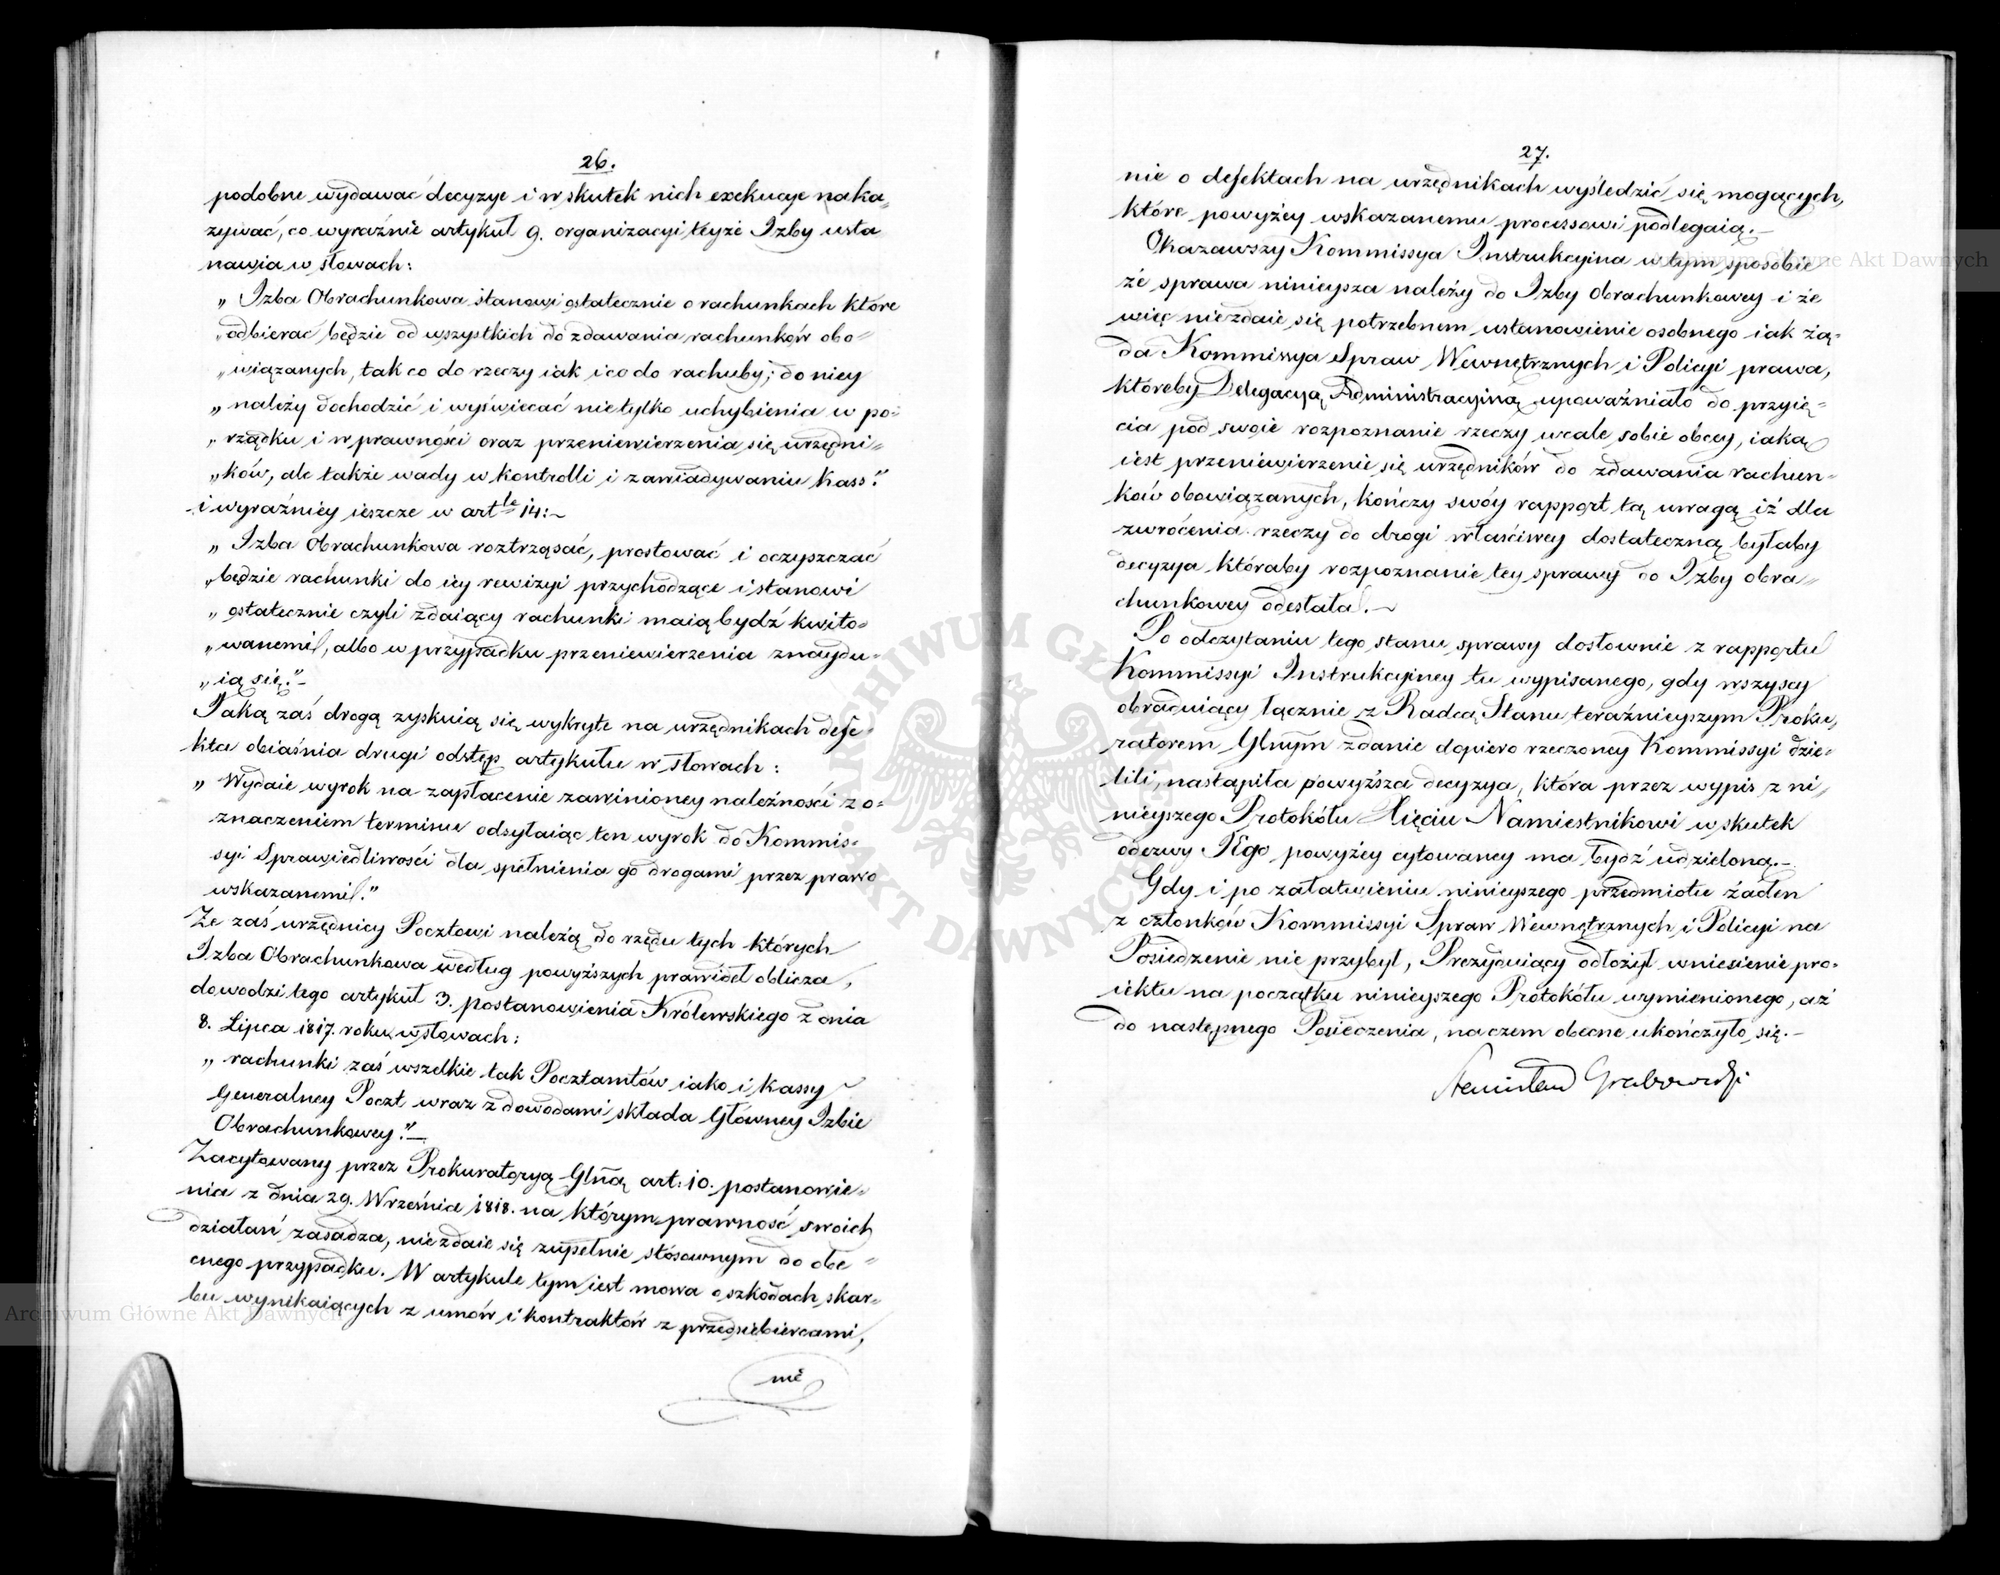 26.
podobne wydawać decyzye i w skutek nich exekucye naka„
zywać, co wyraźnie artykuł 9. organizacyi teyże Izby usta
nawia w słowach:
„ Izba Obrachunkowa stanowi ostatecznie o rachunkach które
„odbierać będzie od wszystkich do zdawania rachunków obo„
„wiązanych, tak co do rzeczy iak i co do rachuby; do niey
„ należy dochodzić i wyświecać nie tylko uchybienia w po„
„ rządku i w prawności oraz przeniewierzenia się urzędni„
„ków, ale także wady w kontrolli i zawiadywaniu Kass.”
i wyraźniey ieszcze w artle 14:~
„ Izba Obrachunkowa roztrząsać, prostować i oczyszczać
„będzie rachunki do iey rewizyi przychodzące i stanowi
„ ostatecznie czyli zdaiący rachunki maią bydź kwito„
„wanemi, albo w przypadku przeniewierzenia znaydu„
„ią się.”–
Jaką zaś drogą zyskuią się wykryte na urzędnikach defe„
kta obiaśnia drugi odstęp artykułu w słowach:
„ Wydaie wyrok na zapłacenie zawinioney należności z o„
znaczeniem terminu odsyłaiąc ten wyrok do Kommis„
syi Sprawiedliwości dla spełnienia go drogami przez prawo
wskazanemi.”
Że zaś urzędnicy Pocztowi należą do rzędu tych których
Izba Obrachunkowa według powyższych prawideł oblicza,
dowodzi tego artykuł 3. postanowienia Królewskiego z dnia
8. Lipca 1817. roku w słowach:
„ rachunki zaś wszelkie tak Pocztamtów iako i Kassy
Generalney Poczt wraz z dowodami składa Główney Izbie
Obrachunkowey.”–
Zacytowany przez Prokuratoryą Glną art: 10. postanowie„
nia z dnia 29. Września 1818. na którym prawność swoich
działań zasadza, nie zdaie się zupełnie stósownym do obe„
cnego przypadku. W artykule tym iest mowa o szkodach skar„
bu wynikaiących z umów i kontraktów z przedsiebiercami,
nie
27.
nie o defektach na urzędnikach wyśledzić się mogących,
które powyżey wskazanemu processowi podlegaią.–
Okazawszy Kommissya Instrukcyina w tym sposobie
że sprawa ninieysza należy do Izby Obrachunkowey i że
więc nie zdaie się potrzebnem ustanowienie osobnego iak żą„
da Kommissya Spraw Wewnętrznych i Policyi prawa,
któreby Delegacyą Administracyiną upoważniało do przyię„
cia pod swoie rozpoznanie rzeczy wcale sobie obcey, iaką
iest przeniewierzenie się urzędników do zdawania rachun„
ków obowiązanych, kończy swóy rapport tą uwagą iż dla
zwrócenia rzeczy do drogi właściwey dostateczną byłaby
decyzya któraby rozpoznanie tey sprawy do Izby obra„
chunkowey odesłała.~
Po odczytaniu tego stanu sprawy dosłownie z rapportu
Kommissyi Instrukcyiney tu wypisanego, gdy wszyscy
obraduiący łącznie z Radcą Stanu teraźnieyszym Proku„
ratorem Glnym zdanie dopiero rzeczoney Kommissyi dzie„
lili, nastąpiła powyższa decyzya, która przez wypis z ni„
nieyszego Protokółu Xięciu Namiestnikowi w skutek
odezwy Jego powyżey cytowaney ma bydź udzieloną.–
Gdy i po załatwieniu ninieyszego przedmiotu żaden
z członków Kommissyi Spraw Wewnętrznych i Policyi na
Posiedzenie nie przybył, Prezyduiący odłożył wniesienie pro„
iektu na początku ninieyszego Protokółu wymienionego, aż
do następnego Posiedzenia, na czem obecne ukończyło się.–
Stanisław Grabowski
Archiwum Główne Akt Dawnych
Archiwum Główne Akt Dawnych
ARCHIWUM GŁÓWNE AKT DAWNYCH